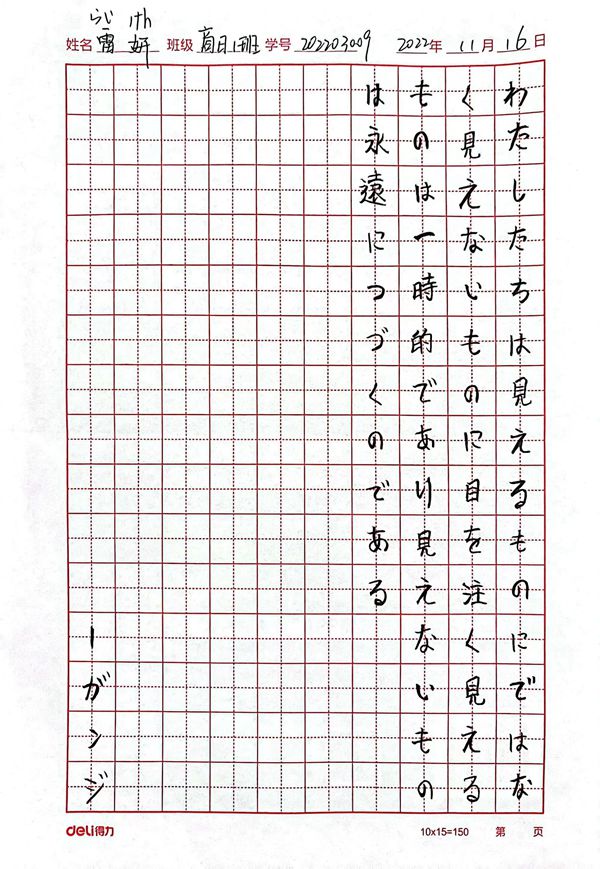 らい けん
姓名 雷 妍 班级 商日1班 学号 202203009 2022年 11月 16日
わたしたちは見えるものにではな
く見えないものに目を注く見える
ものは一時的であり見えないもの
は永遠につづくのである
ーガンジ
deli得力 10x15=150 第 页